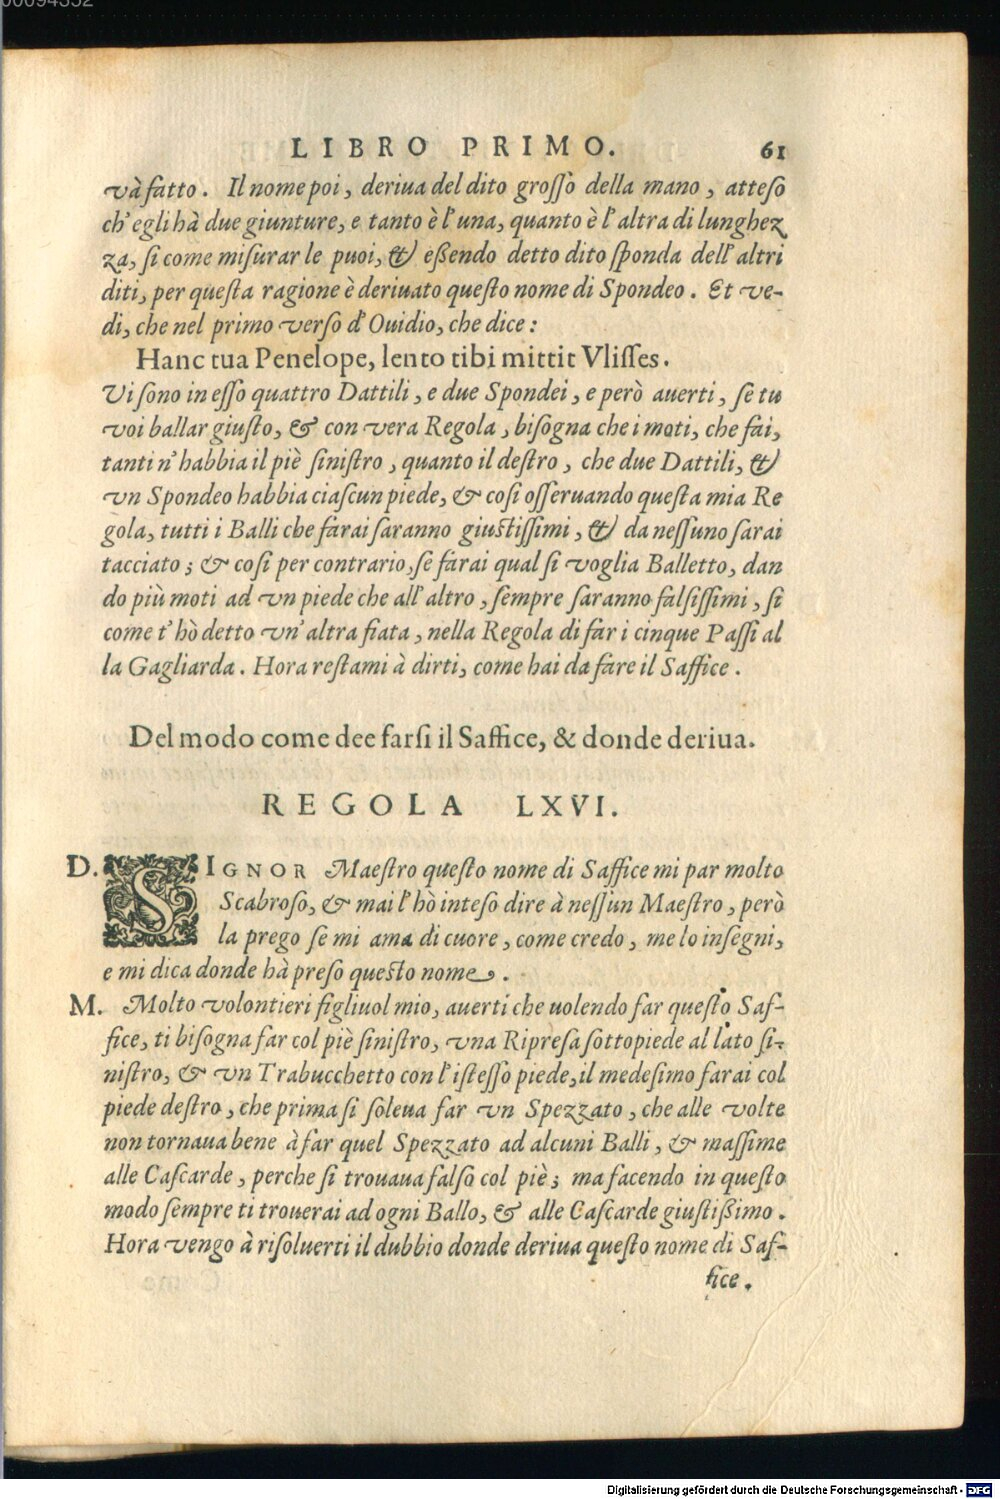 LIBRO PRIMO. 61
và fatto. Il nome poi, deriua del dito grosso della mano, atteso
ch'egli hà due giunture, e tanto è l'una, quanto è l'altra di lunghez
za, si come misurar le puoi, & eßendo detto dito sponda dell'altri
diti, per questa ragione è deriuato questo nome di Spondeo. Et ve-
di, che nel primo verso d'Ouidio, che dice:
Hanc tua Penelope, lento tibi mittit Vlisses.
Vi sono in esso quattro Dattili, e due Spondei, e però auerti, se tu
voi ballar giusto, & con vera Regola, bisogna che i moti, che fai,
tanti n'habbia il piè sinistro, quanto il destro, che due Dattili, &
vn Spondeo habbia ciascun piede, & cosi osseruando questa mia Re
gola, tutti i Balli che farai saranno giustissimi, & da nessuno sarai
tacciato; & cosi per contrario, se farai qual si voglia Balletto, dan
do più moti ad vn piede che all'altro, sempre saranno falsissimi, si
come t'hò detto vn'altra fiata, nella Regola di far i cinque Passi al
la Gagliarda. Hora restami à dirti, come hai da fare il Saffice.
Del modo come dee farsi il Saffice, & donde deriua.
REGOLA LXVI.
D. SIGNOR Maestro questo nome di Saffice mi par molto
Scabroso, & mai l'hò inteso dire à nessun Maestro, però
la prego se mi ama di cuore, come credo, me lo insegni,
e mi dica donde hà preso questo nome.
M. Molto volontieri figliuol mio, auerti che uolendo far questo Saf-
fice, ti bisogna far col piè sinistro, vna Ripresa sottopiede al lato si-
nistro, & vn Trabucchetto con l'istesso piede, il medesimo farai col
piede destro, che prima si soleua far vn Spezzato, che alle volte
non tornaua bene à far quel Spezzato ad alcuni Balli, & massime
alle Cascarde, perche si trouaua falso col piè; ma facendo in questo
modo sempre ti trouerai ad ogni Ballo, & alle Cascarde giustißimo.
Hora vengo à risoluerti il dubbio donde deriua questo nome di Saf-
fice.
Digitalisierung gefördert durch die Deutsche Forschungsgemeinschaft - DFG